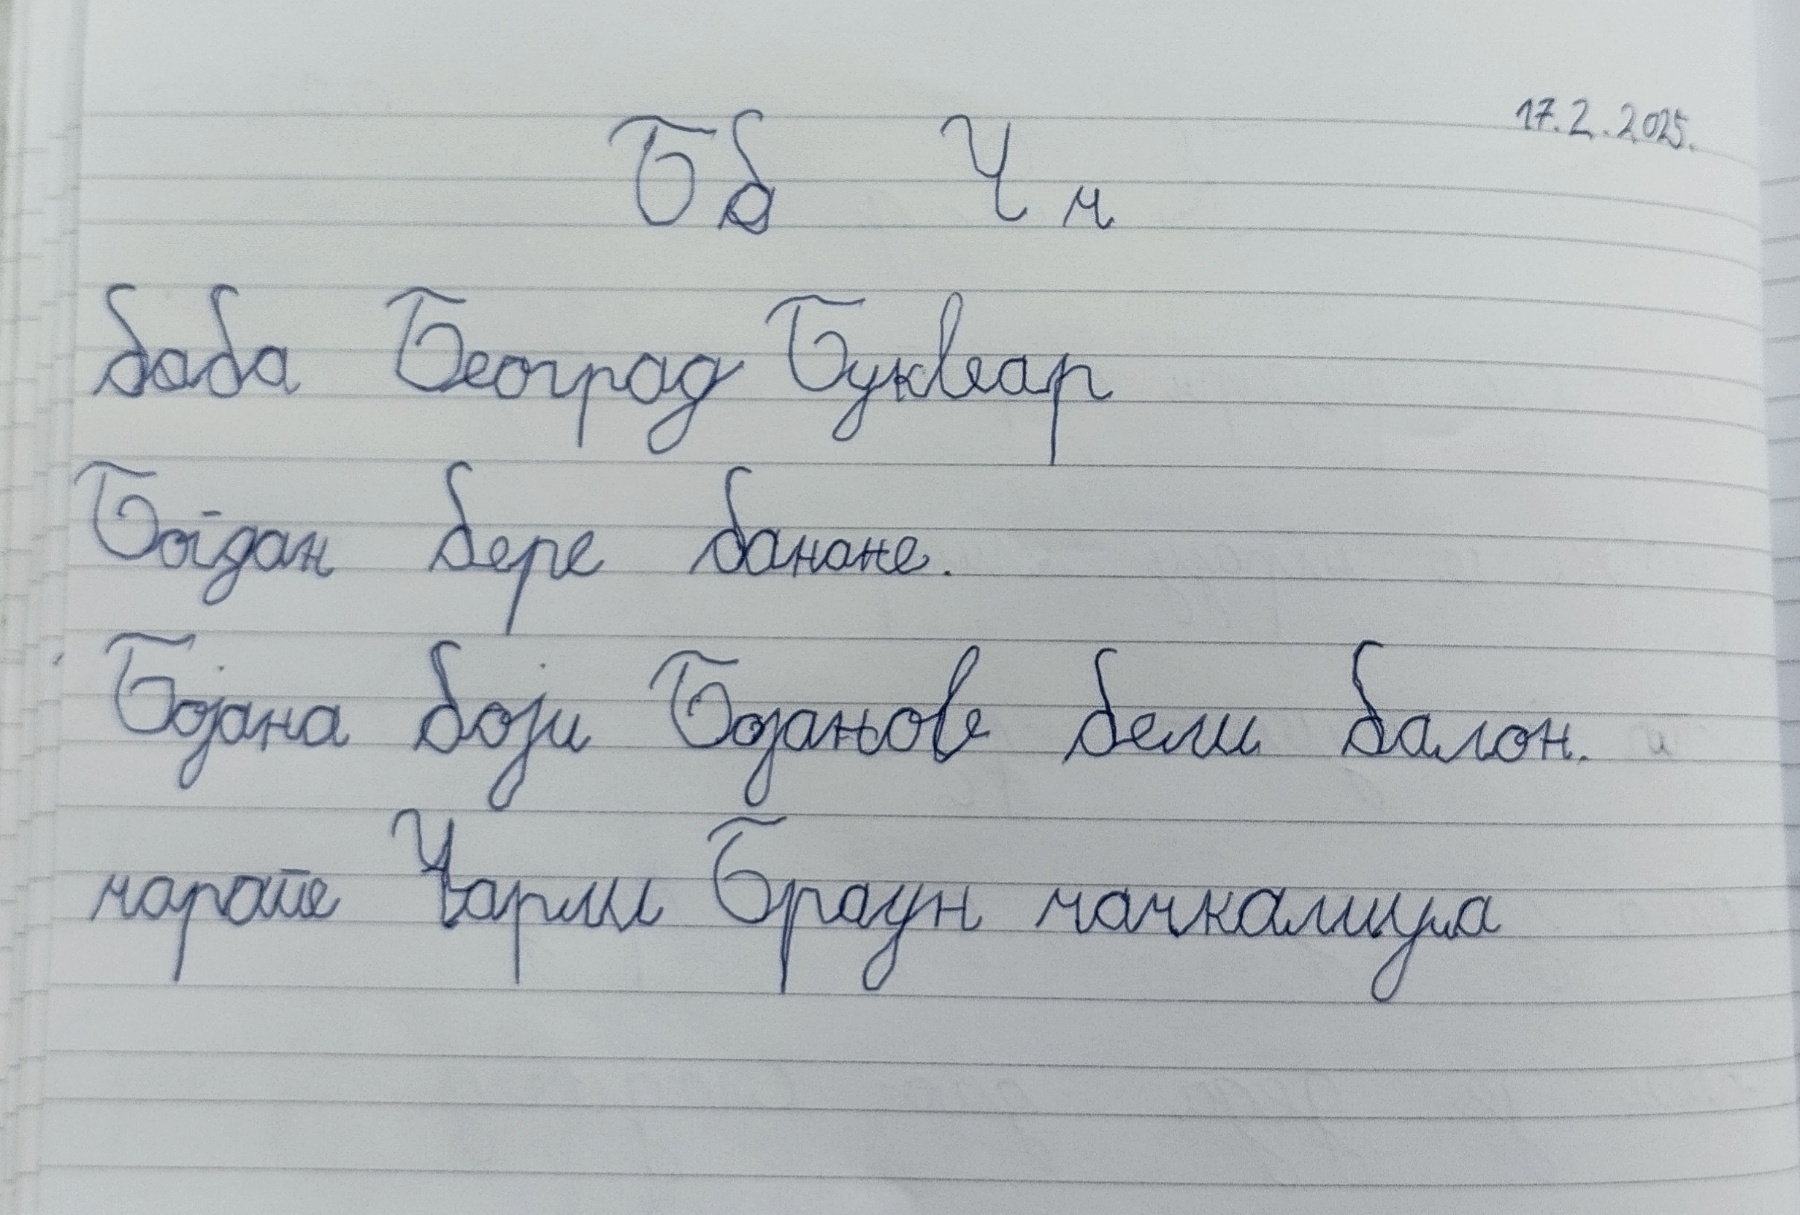 17.2.2025.
Бб Чч
баба Београд Буквар
Богдан бере банане.
Бојана боји Бојанов бели балон.
чарапе Чарли Браун чачкалица